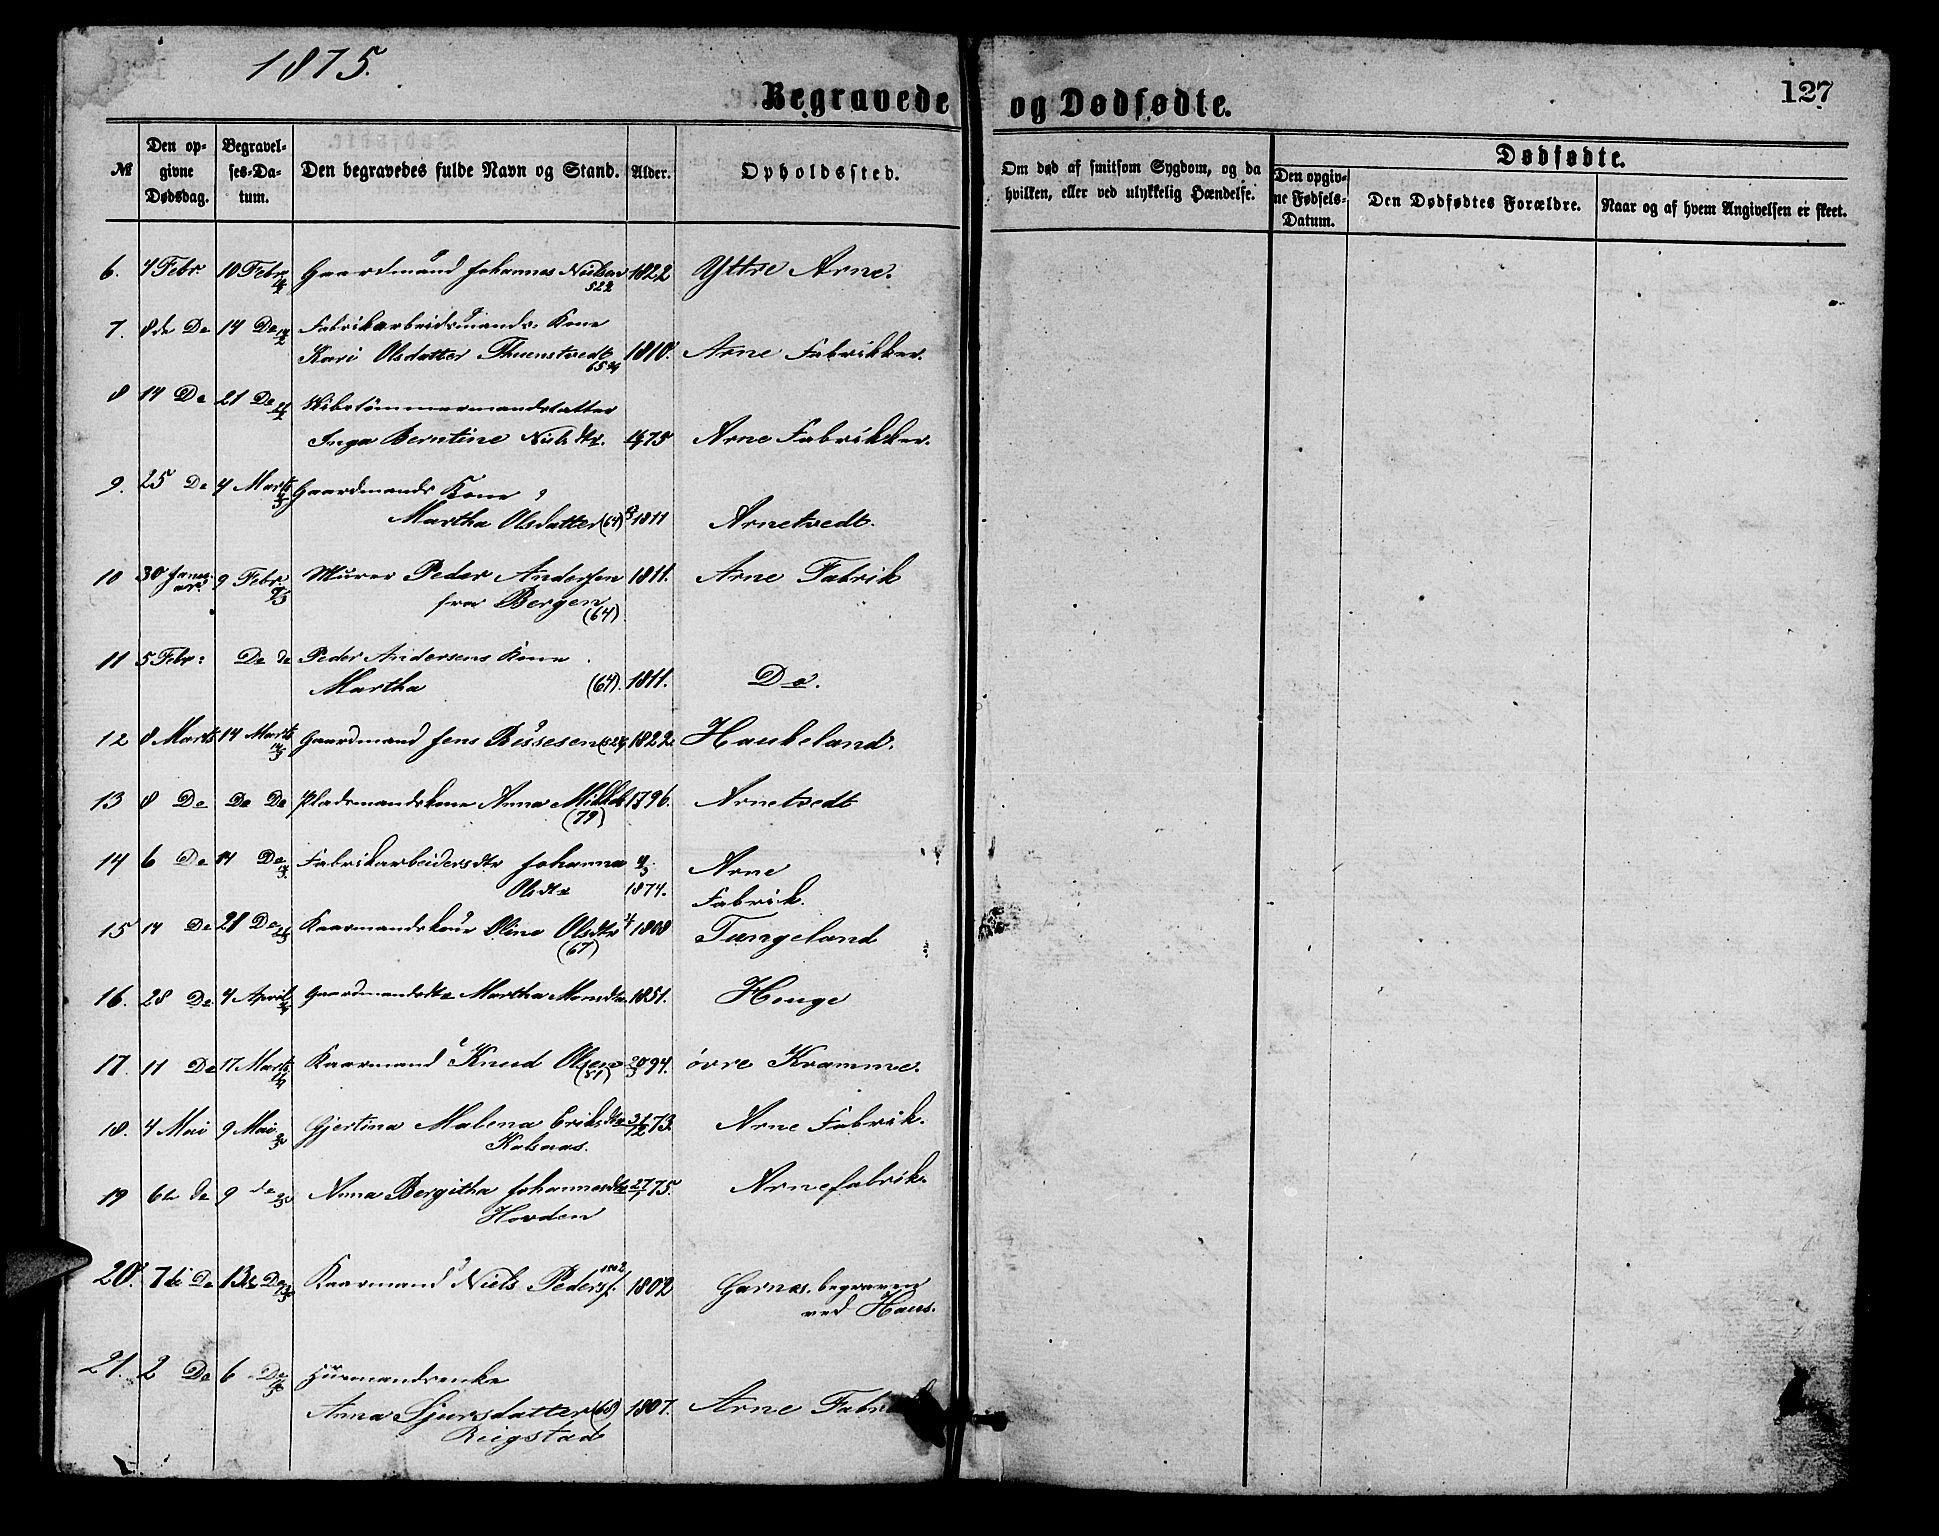 1875.
127
Begravede og Dødfødte.
№
Den opgivne Dødsdag.
Begravelses-Datum.
Den begravedes fulde Navn og Stand.
Alder.
Opholdssted.
Om død af smitsom Sygdom, og da hvilken, eller ved ulykkelig Hændelse.
Dødfødte.
Den opgivne Fødsels-Datum.
Den Dødfødtes Forældre.
Naar og af hvem Angivelsen er skeet.
6. 4 Febr 10 Febr Gaardmand Johannes Nielsen 1822 Yttre Arne.
522
7. 8de Do 14 Do Fabrikarbeidsmands Kone
Kari Olsdatter Thuenstvedt 1810. Arne Fabrikker.
65
8 14 Do 21 Do Skibstömmermandsdatter
Inga Berntine Nielsdtr. 75 Arne Fabrikker.
9. 25 Do 4 Marts Gaardmands Kone
Martha Olsdatter (64) 1811 Arnetvedt.
10 30 Januar 9 Febr. Murer Peder Andersen 1811. Arne Fabrik
fra Bergen
(64)
11 5 Febr: Do do Peder Andersens Kone
Martha (64). 1811. Do.
12 8 Marts 14 Marts Gaardmand Jens Bessesen 1822 Haukeland.
13 8 Do Do Do Pladsmandskone Anna Mikkels 1796. Arnetvedt
(79)
14 6 Do 14 Do Fabrikarbeidersdtr Johanna Arne
Olsdtr 1874. Fabrik.
15 14 Do 21 Do Kaarmandskone Oline Olsdtr 1808 Tungeland
(67)
16. 28 Do 4 April Gaardmandsdtr Martha Monsdtr 1851. Houge
17. 11 Do 17 Marts Kaarmand Knud Olsen 94. øvre Kramme.
(81)
18. 4 Mai 9 Mai Gjertina Malena Eriksdtr 73. Arne Fabrik.
Kalsaas.
19 6te do 9 do Anna Bergitha Johannesdtr 27/1 75. Arnefabrik.
Hovden
20. 7de Do 13de Do Kaarmand Niels Peders. 1802 Garnæs. begraven
ved Haus.
21. 2 Do 6 Do Huusmandsenke
Anna Sjursdatter (68) 1807. Arne Fabrik
Reigstad